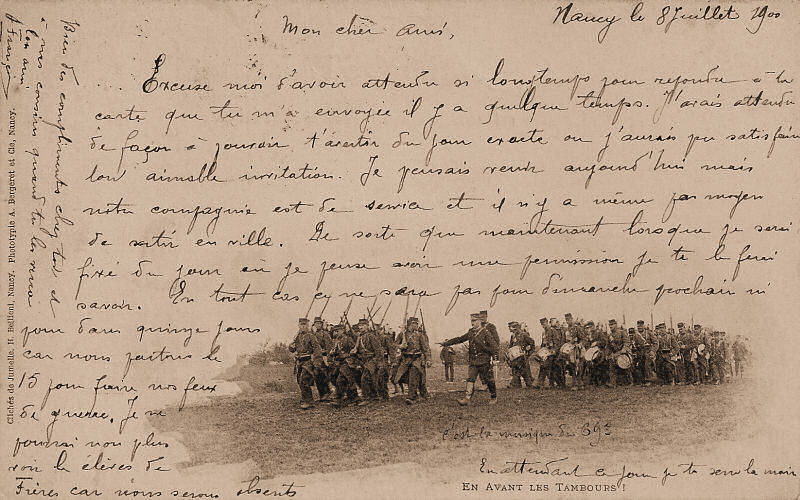 Nancy le 8 Juillet 1900
Mon cher ami,
Excuse moi d'avoir attendu si longtemps pour repondre à ta
carte que tu m'a envoyée il y a quelque temps. J'avais attendu
de façon à pouvoir t'avertir du jour exacte ou j'aurais pu satisfaire
ton aimable invitation. Je pensais venir aujourd'hui mais
notre compagnie est de service et il n'y a même pas moyen
de sortir en ville. De sorte que maintenant lorsque je serai
fixé du jour où je pense avoir une permission je te le ferai
savoir. En tout cas ce ne sera pas pour dimanche prochain ni
pour dans quinze jours
car nous partons le
15 pour faire nos feux
de guerre. Je ne
pourrai non plus
voir le élèves de
Frères car nous serons absents
c'est la musique du 69e
En attendant ce jour je te serre la main
EN AVANT LES TAMBOURS !
Bien des compliments chez toi et
à mes cousins quand tu les verras
Ton ami
François
Clichés de Jumelle, H. Bellieni, Nancy. Phototypie A. Bergeret et Cie, Nancy.